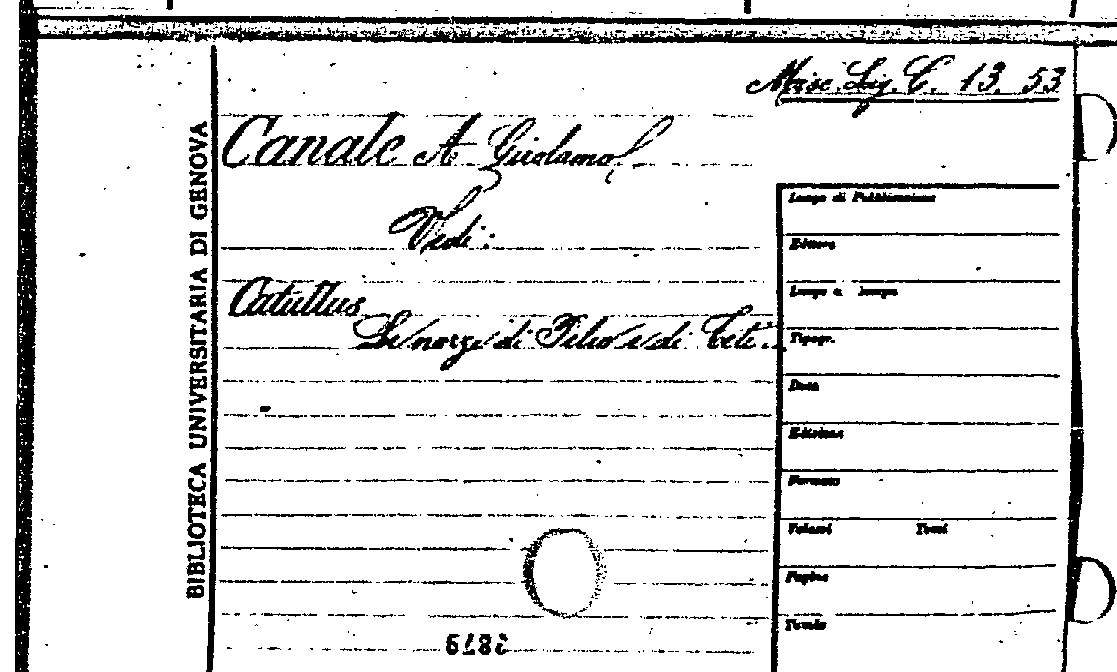 Misc. Lig. C. 13. 53
Canale A Girolamo
Vedi:
Catullus
Le nozze di Peleo e di Teti.
BIBLIOTECA UNIVERSITARIA DI GENOVA
Luogo di Pubblicazione
Editore
Luogo e
Tipogr.
Data
Edizione
Formato
Volumi Tomi
Pagine
Tavole